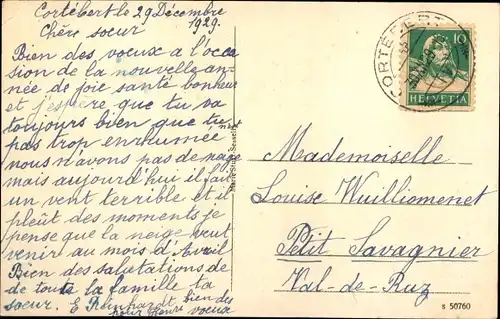 Cortébert le 29 Décembre
1929.
Chère soeur
Bien des voeux a l'occa
sion de la nouvelle an-
née de joie santé bonheur
et j'espère que tu va
toujours bien que tu n'est
pas trop enrhumée
nous n'avons pas de neige
mais aujourd'hui il fait
un vent terrible et il
pleût des moments je
pense que la neige veut
venir au mois d'Avril
Bien des salutations de
de toute la famille ta
soeur. E Reinhardt bien des
voeux
CORTÉBERT
10
HELVETIA
Mademoiselle
Louise Wuilliomenet
Petit Savagnier
Val-de-Ruz
s 50760